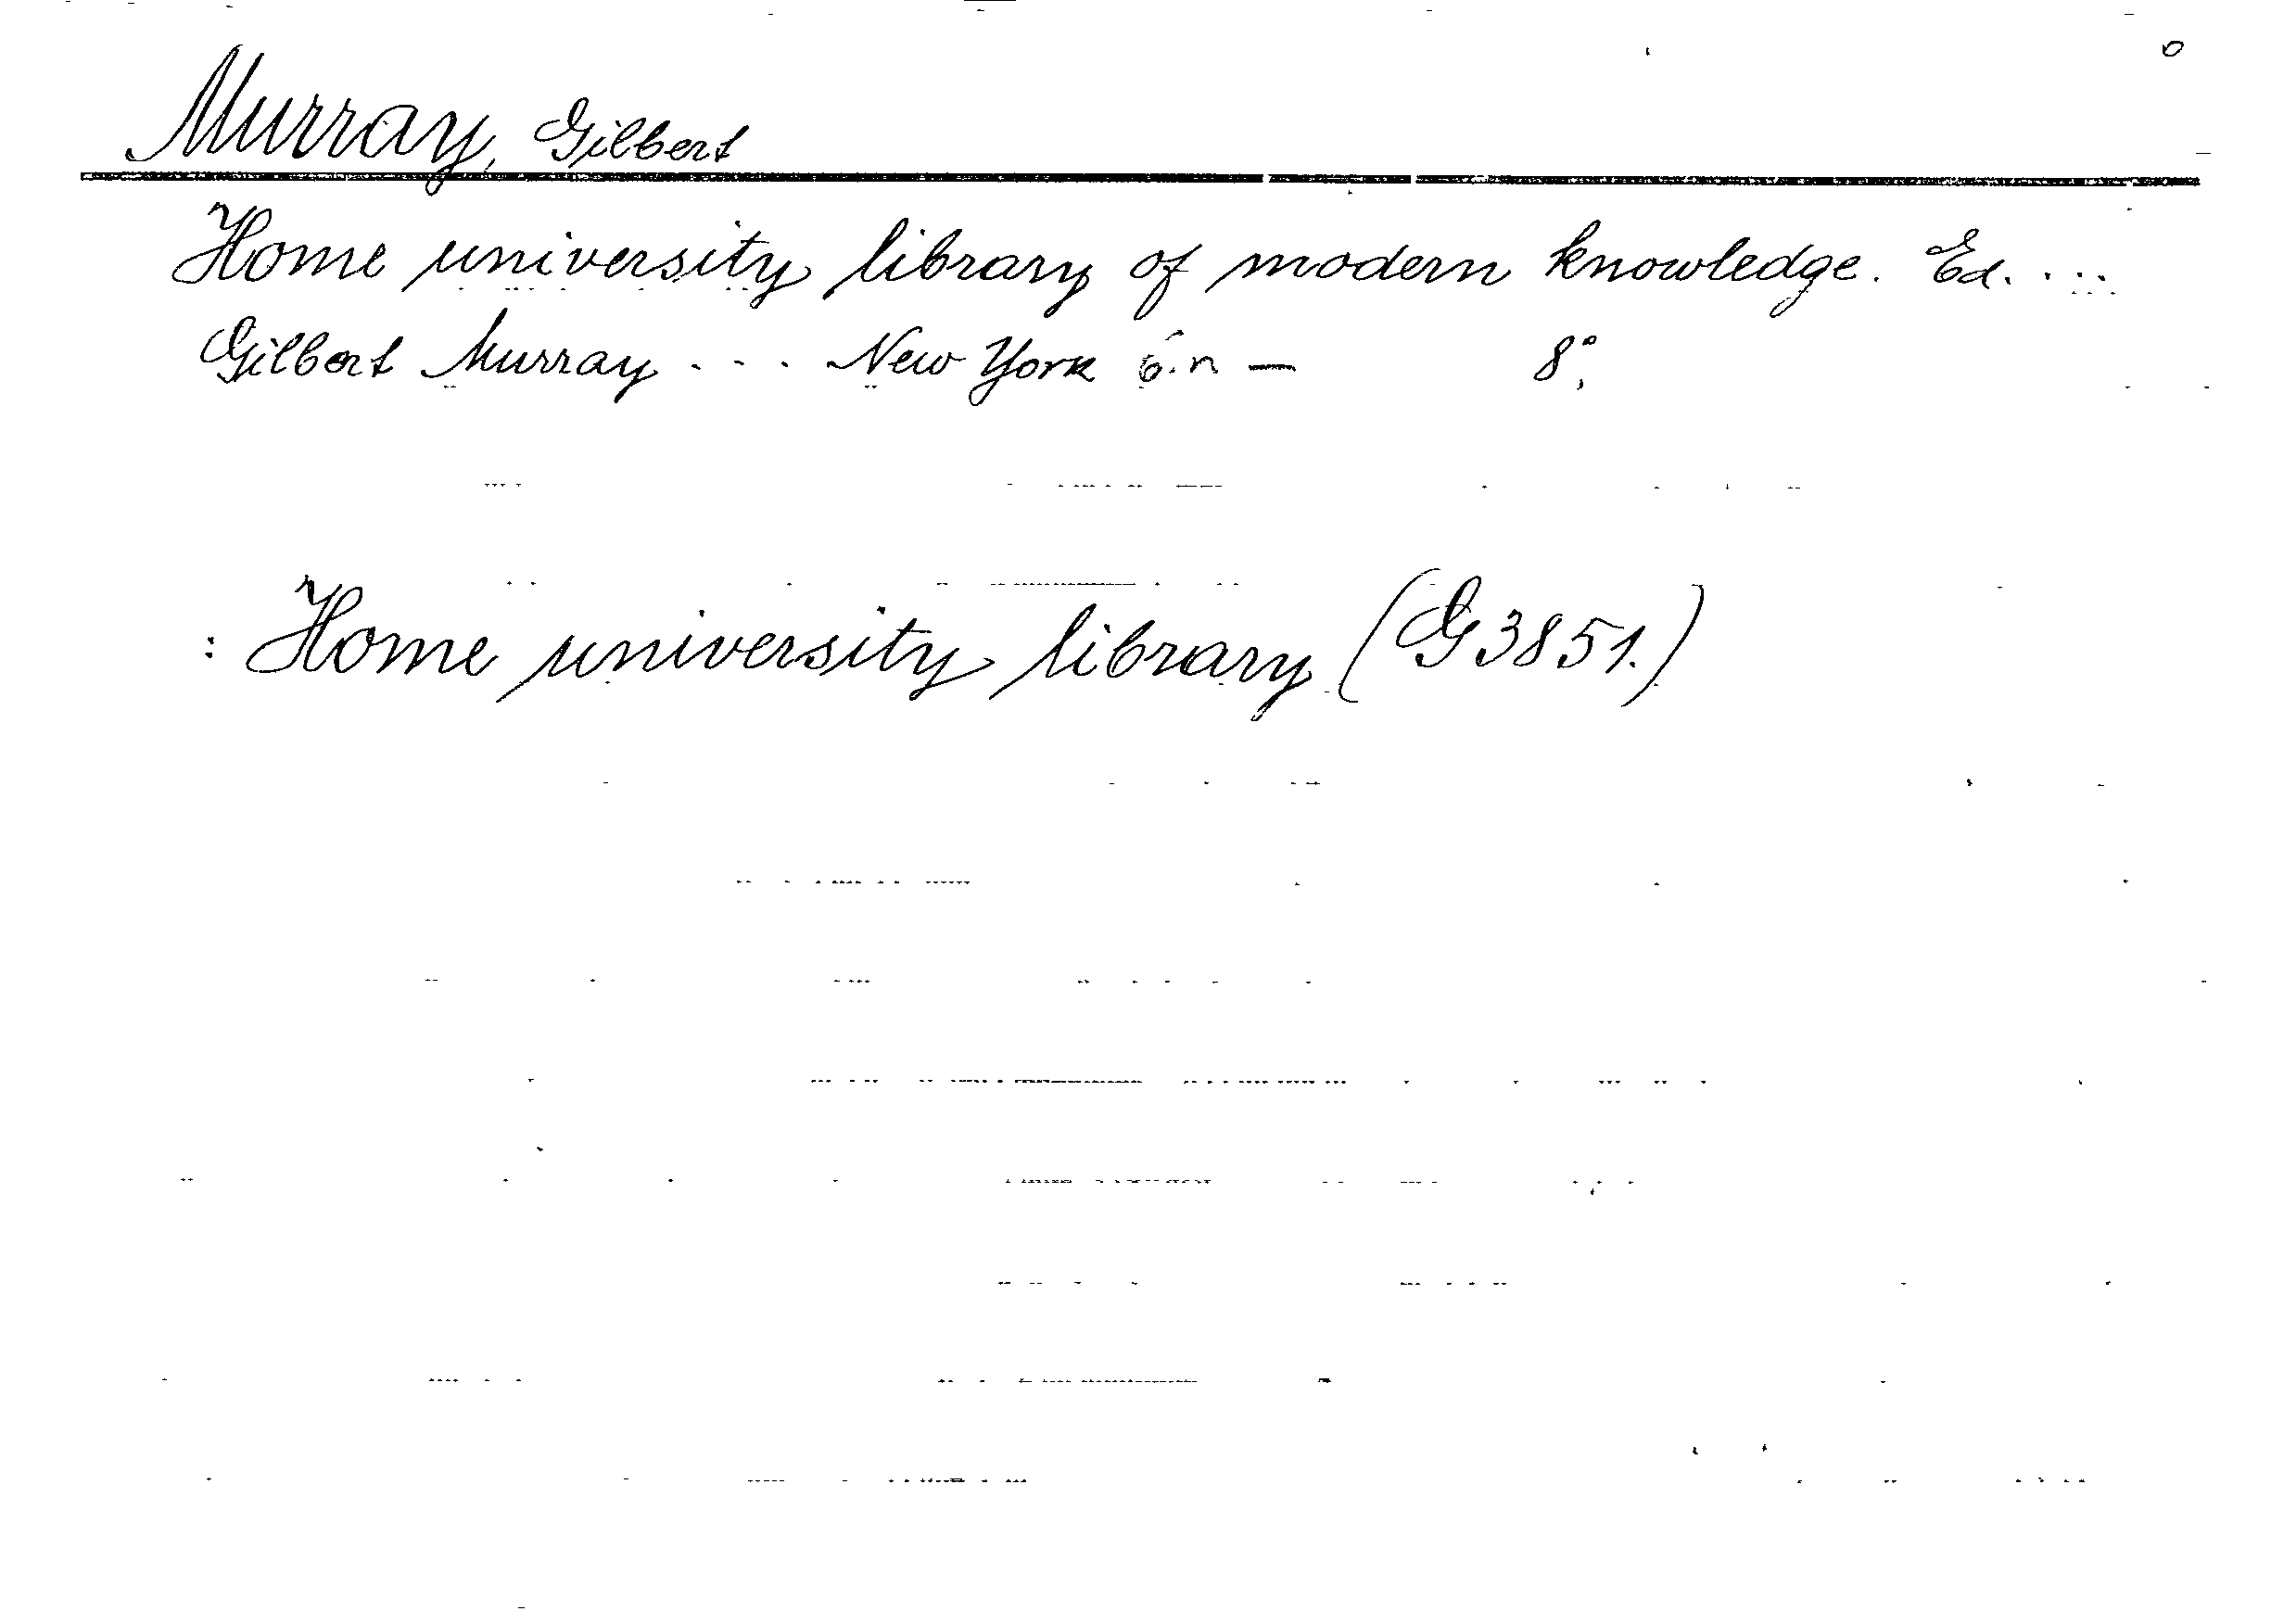 Murray, Gilbert
Home university library of modern knowledge. Ed. ...
Gilbert Murray ... New York é.n — 8°.
: Home university library (G3851.)